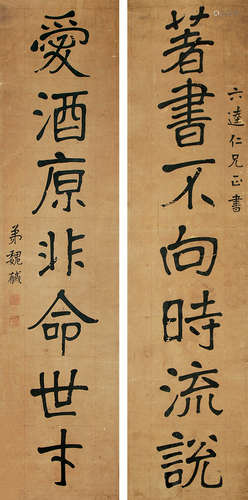 著書不向時流說
六逵仁兄正書
愛酒原非命世才
弟魏馘